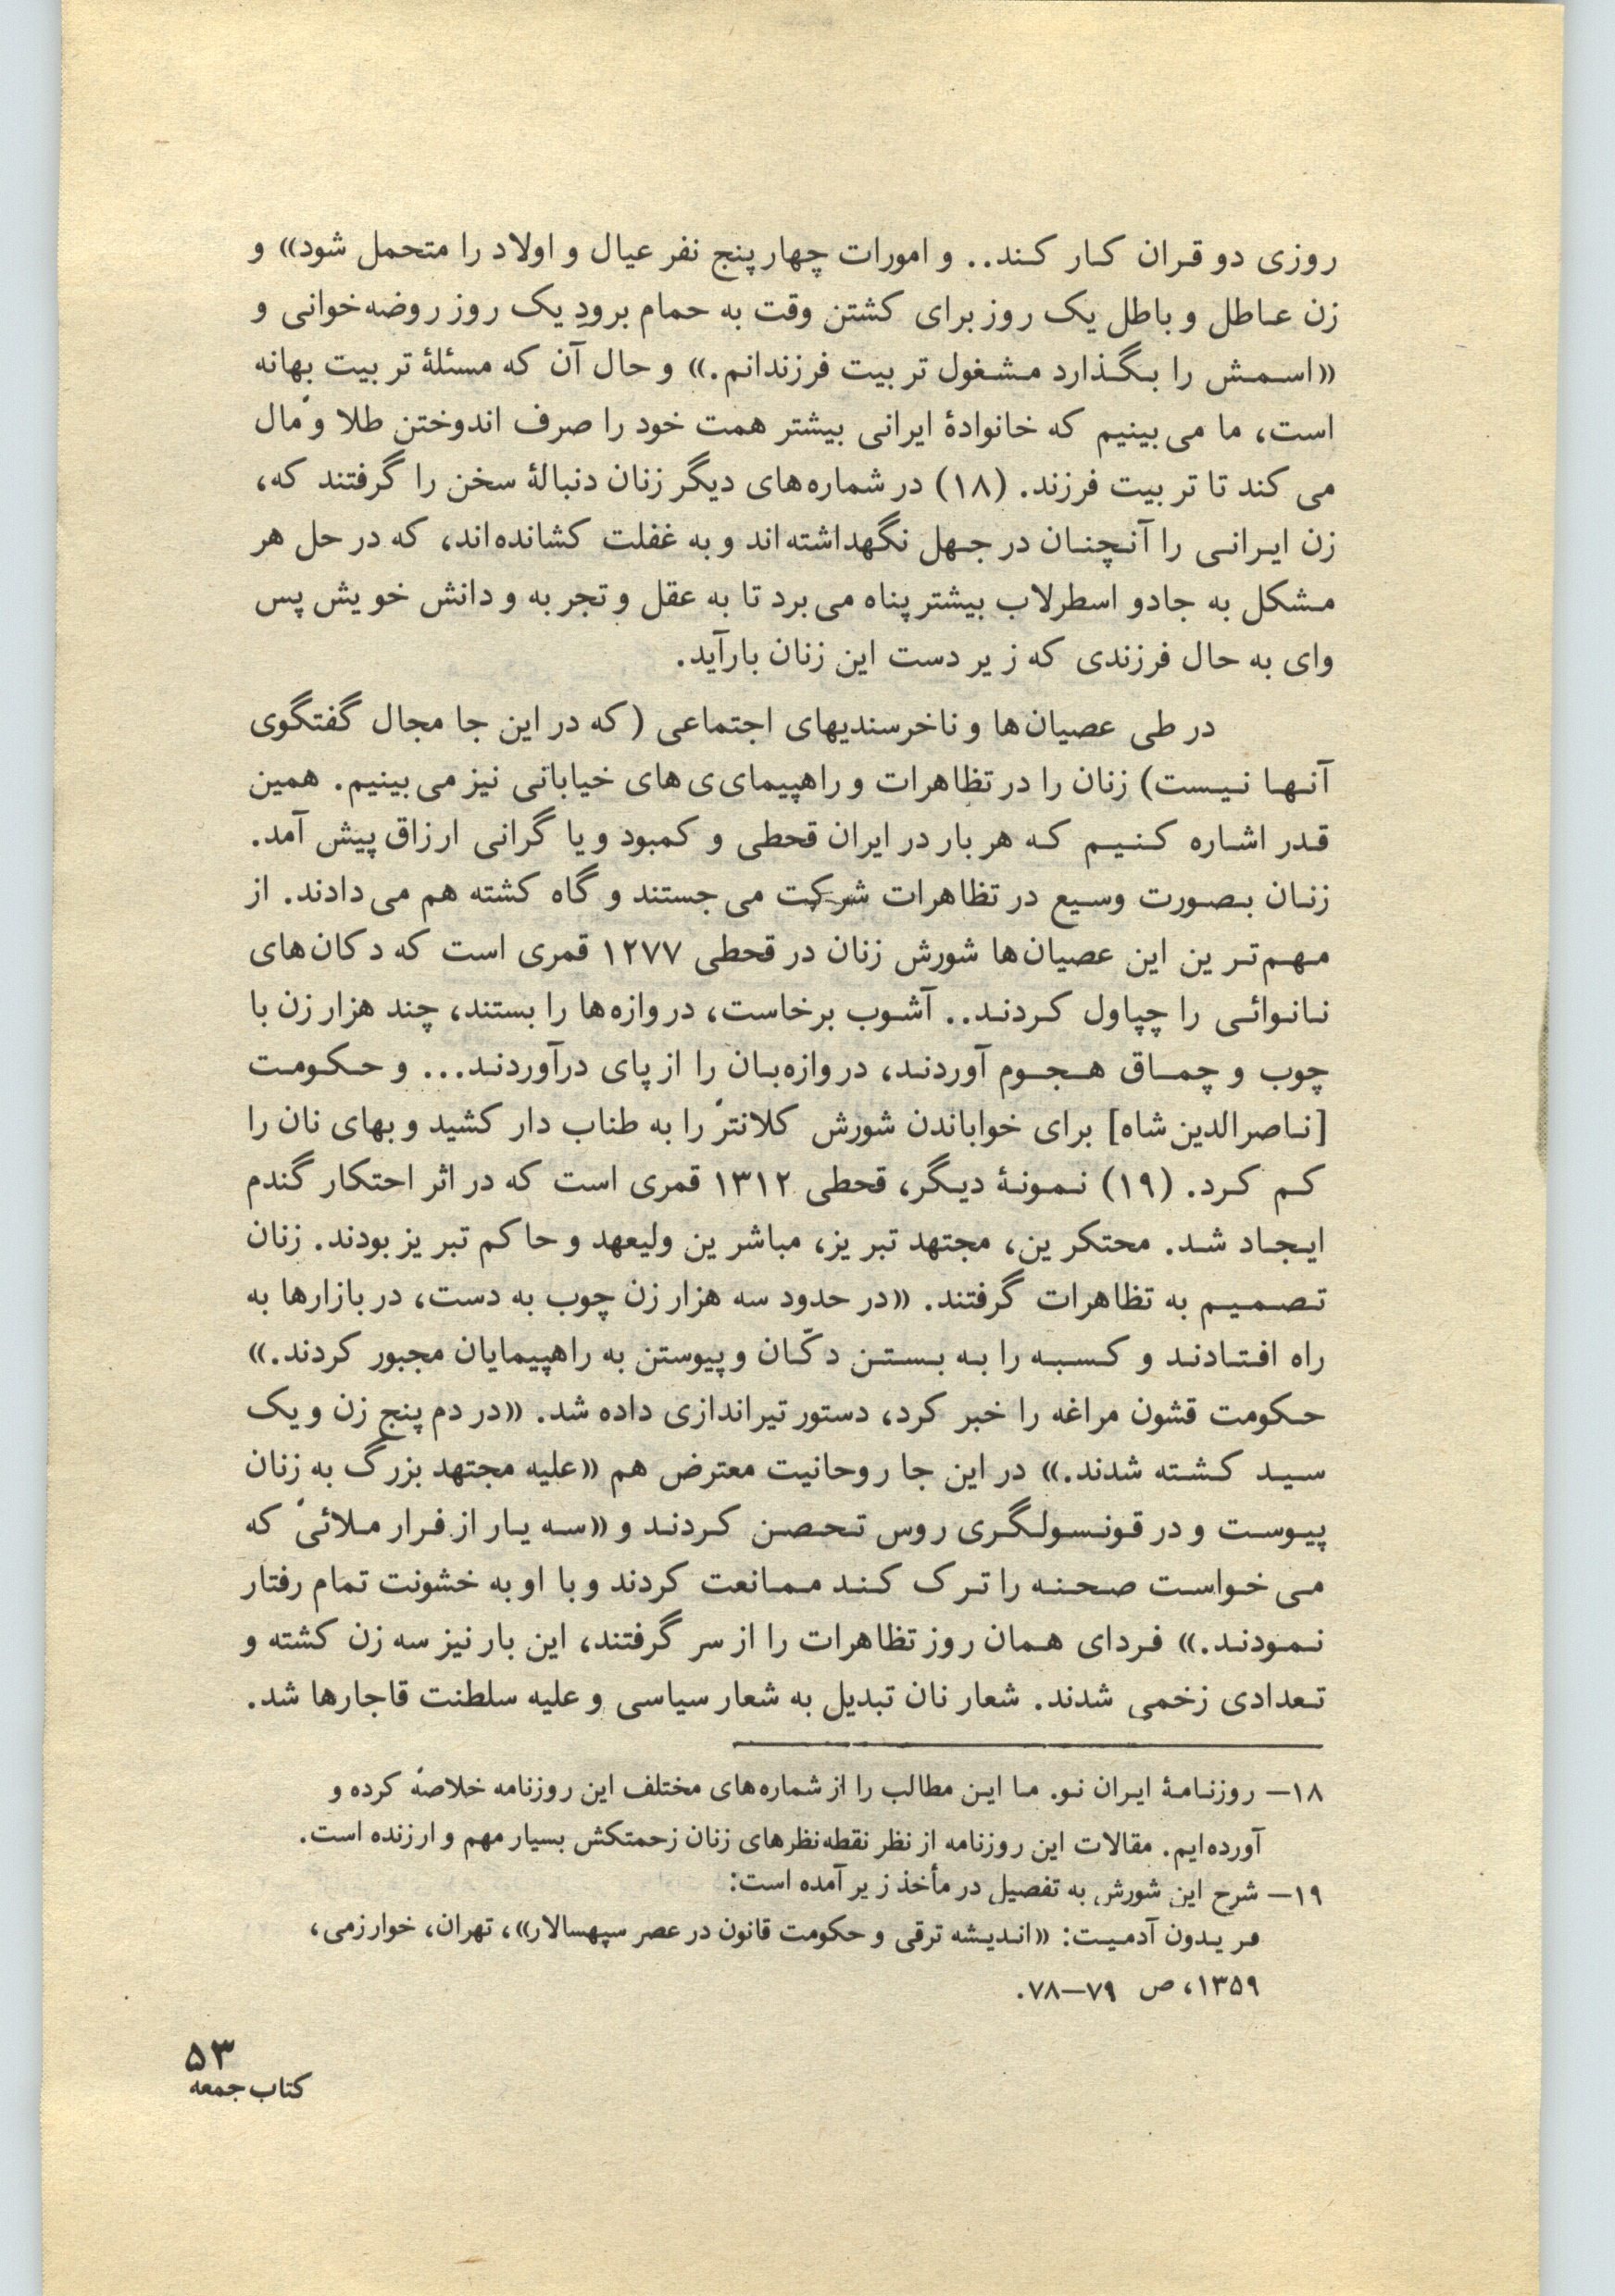 روزی دو قران کار کند.. و امورات چهار پنج نفر عیال و اولاد را متحمل شود» و
زن عاطل و باطل یک روز برای کشتن وقت به حمام برودِ یک روز روضه‌خوانی و
«اسمش را بگذارد مشغول تربیت فرزندانم.» و حال آن که مسئلهٔ تربیت بهانه
است، ما می‌بینیم که خانوادهٔ ایرانی بیشتر همت خود را صرف اندوختن طلا و مال
می‌کند تا تربیت فرزند. (۱۸) در شماره‌های دیگر زنان دنبالهٔ سخن را گرفتند که،
زن ایرانی را آنچنان در جهل نگهداشته‌اند و به غفلت کشانده‌اند، که در حل هر
مشکل به جادو اسطرلاب بیشتر پناه می‌برد تا به عقل و تجربه و دانش خویش پس
وای به حال فرزندی که زیر دست این زنان بارآید.
در طی عصیان‌ها و ناخرسندیهای اجتماعی (که در این جا مجال گفتگوی
آنها نیست) زنان را در تظاهرات و راهپیمای‌ی‌های خیابانی نیز می‌بینیم. همین
قدر اشاره کنیم که هر بار در ایران قحطی و کمبود و یا گرانی ارزاق پیش آمد.
زنان بصورت وسیع در تظاهرات شرکت می‌جستند و گاه کشته هم می‌دادند. از
مهم‌ترین این عصیان‌ها شورش زنان در قحطی ۱۲۷۷ قمری است که دکان‌های
نانوائی را چپاول کردند.. آشوب برخاست، دروازه‌ها را بستند، چند هزار زن با
چوب و چماق هجوم آوردند، دروازه‌بان را از پای درآوردند... و حکومت
[ناصرالدین‌شاه] برای خواباندن شورش کلانتر را به طناب دار کشید و بهای نان را
کم کرد. (۱۹) نمونهٔ دیگر، قحطی ۱۳۱۲ قمری است که در اثر احتکار گندم
ایجاد شد. محتکرین، مجتهد تبریز، مباشرین ولیعهد و حاکم تبریز بودند. زنان
تصمیم به تظاهرات گرفتند. «در حدود سه هزار زن چوب به دست، در بازارها به
راه افتادند و کسبه را به بستن دکّان و پیوستن به راهپیمایان مجبور کردند.»
حکومت قشون مراغه را خبر کرد، دستور تیراندازی داده شد. «در دم پنج زن و یک
سید کشته شدند.» در این جا روحانیت معترض هم «علیه مجتهد بزرگ به زنان
پیوست و در قونسولگری روس تحصن کردند و «سه یار از فرار ملائی که
می‌خواست صحنه را ترک کند ممانعت کردند و با او به خشونت تمام رفتار
نمودند.» فردای همان روز تظاهرات را از سر گرفتند، این بار نیز سه زن کشته و
تعدادی زخمی شدند. شعار نان تبدیل به شعار سیاسی و علیه سلطنت قاجارها شد.
۱۸— روزنامهٔ ایران نو. ما این مطالب را از شماره‌های مختلف این روزنامه خلاصه کرده و
آورده‌ایم. مقالات این روزنامه از نظر نقطه‌نظرهای زنان زحمتکش بسیار مهم و ارزنده است.
۱۹— شرح این شورش به تفصیل در مأخذ زیر آمده است:
فریدون آدمیت: «اندیشه ترقی و حکومت قانون در عصر سپهسالار»، تهران، خوارزمی،
۱۳۵۹، ص ۷۹—۷۸.
۵۳
کتاب جمعه